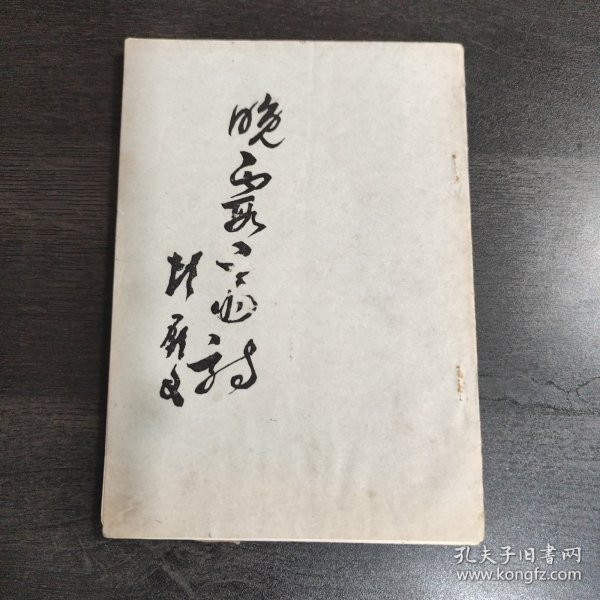 晚霞诗
胡厥文
孔夫子旧书网
www.kongfz.com